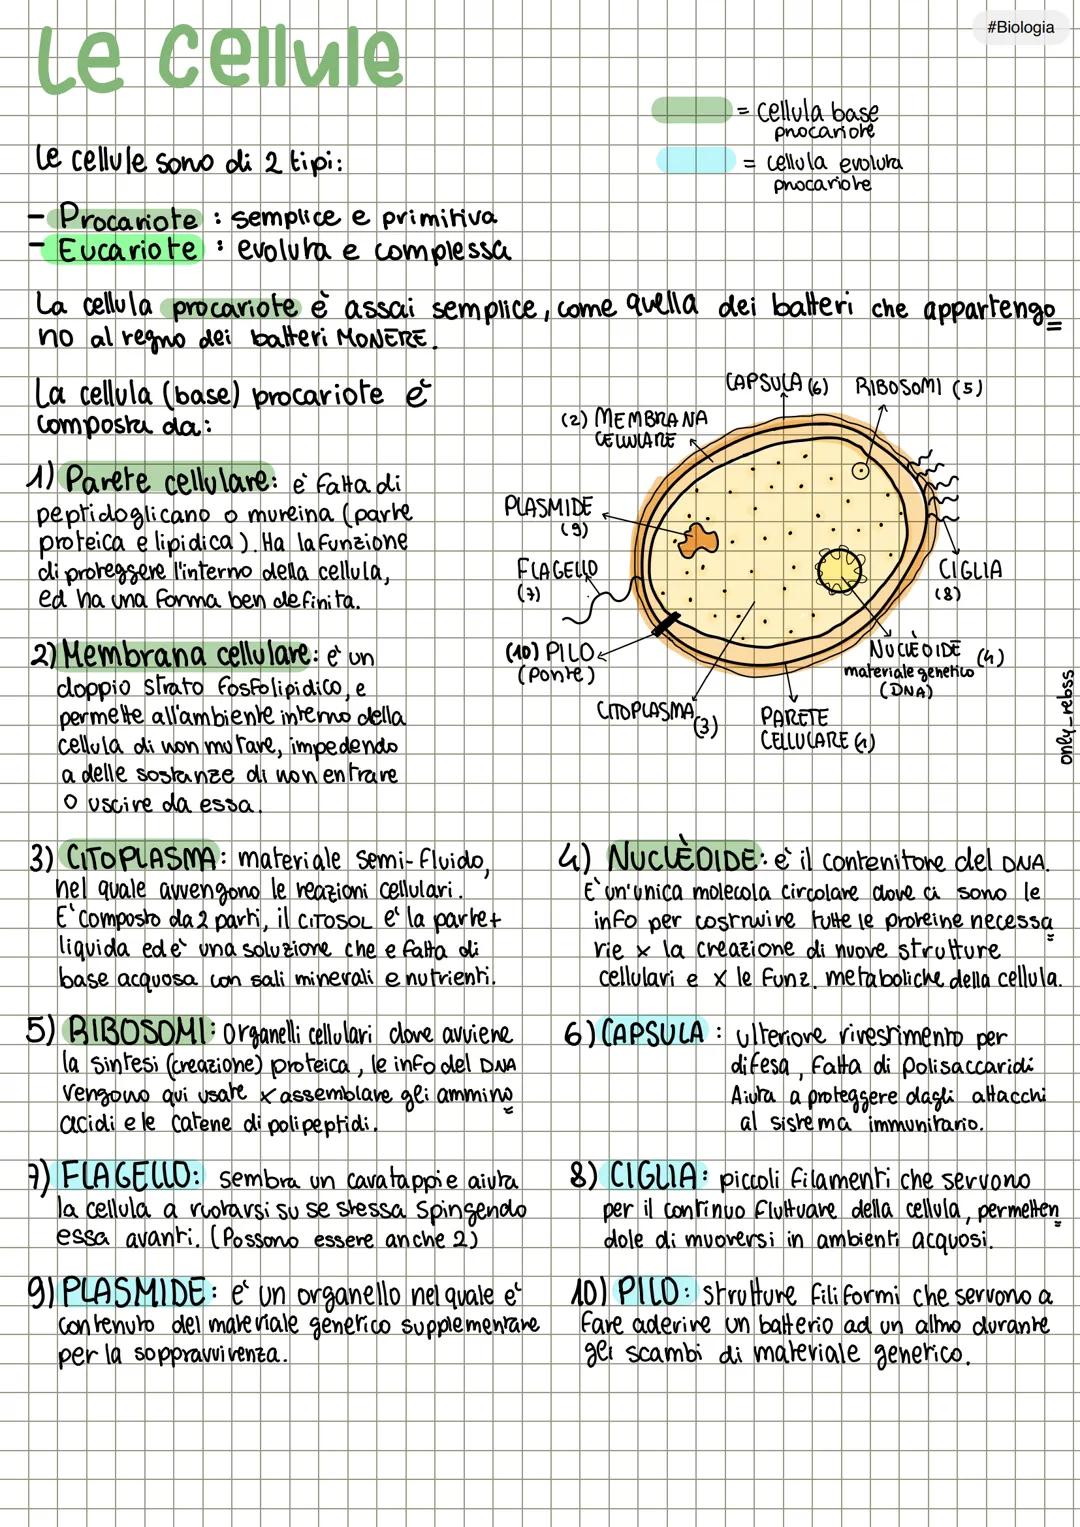 #Biologia
Le cellule
= cellula base
procariote
= cellula evoluta
procariote
Le cellule sono di 2 tipi:
- Procariote : semplice e primitiva
- Eucariote : evoluta e complessa
La cellula procariote è assai semplice, come quella dei batteri che appartengo
no al regno dei batteri MONERE.
La cellula (base) procariote è
composta da:
1) Parete cellulare: è fatta di
peptidoglicano o mureina (parte
proteica e lipidica). Ha la funzione
di proteggere l'interno della cellula,
ed ha una forma ben definita.
2) Membrana cellulare: è un
doppio strato fosfolipidico, e
permette all'ambiente interno della
cellula di non mutare, impedendo
a delle sostanze di non entrare
o uscire da essa.
CAPSULA (6)
RIBOSOMI (5)
(2) MEMBRANA
CELLULARE
PLASMIDE
(9)
FLAGELLO
(7)
CIGLIA
(8)
(10) PILO
(Ponte)
NUCLÈOIDE (4)
materiale genetico
(DNA)
CITOPLASMA (3)
PARETE
CELLULARE (1)
only_rebss
3) CITOPLASMA: materiale semi-fluido,
nel quale avvengono le reazioni cellulari.
E' composto da 2 parti, il CITOSOL è la parte +
liquida ed è una soluzione che e fatta di
base acquosa con sali minerali e nutrienti.
4) NUCLÈOIDE: è il contenitore del DNA.
E' un'unica molecola circolare dove ci sono le
info per costruire tutte le proteine necessa
rie x la creazione di nuove strutture
cellulari e x le funz. metaboliche della cellula.
5) RIBOSOMI: Organelli cellulari dove avviene
la sintesi (creazione) proteica, le info del DNA
vengono qui usate x assemblare gli ammino
acidi e le catene di polipeptidi.
6) CAPSULA : ulteriore rivestimento per
difesa, fatta di Polisaccaridi
Aiuta a proteggere dagli attacchi
al sistema immunitario.
7) FLAGELLO: sembra un cavatappi e aiuta
la cellula a ruotarsi su se stessa spingendo
essa avanti. (Possono essere anche 2)
8) CIGLIA: piccoli filamenti che servono
per il continuo fluttuare della cellula, permetten
dole di muoversi in ambienti acquosi.
9) PLASMIDE: è un organello nel quale è
contenuto del materiale genetico supplementare
per la sopravvivenza.
10) PILO: strutture filiformi che servono a
fare aderire un batterio ad un altro durante
gli scambi di materiale genetico.